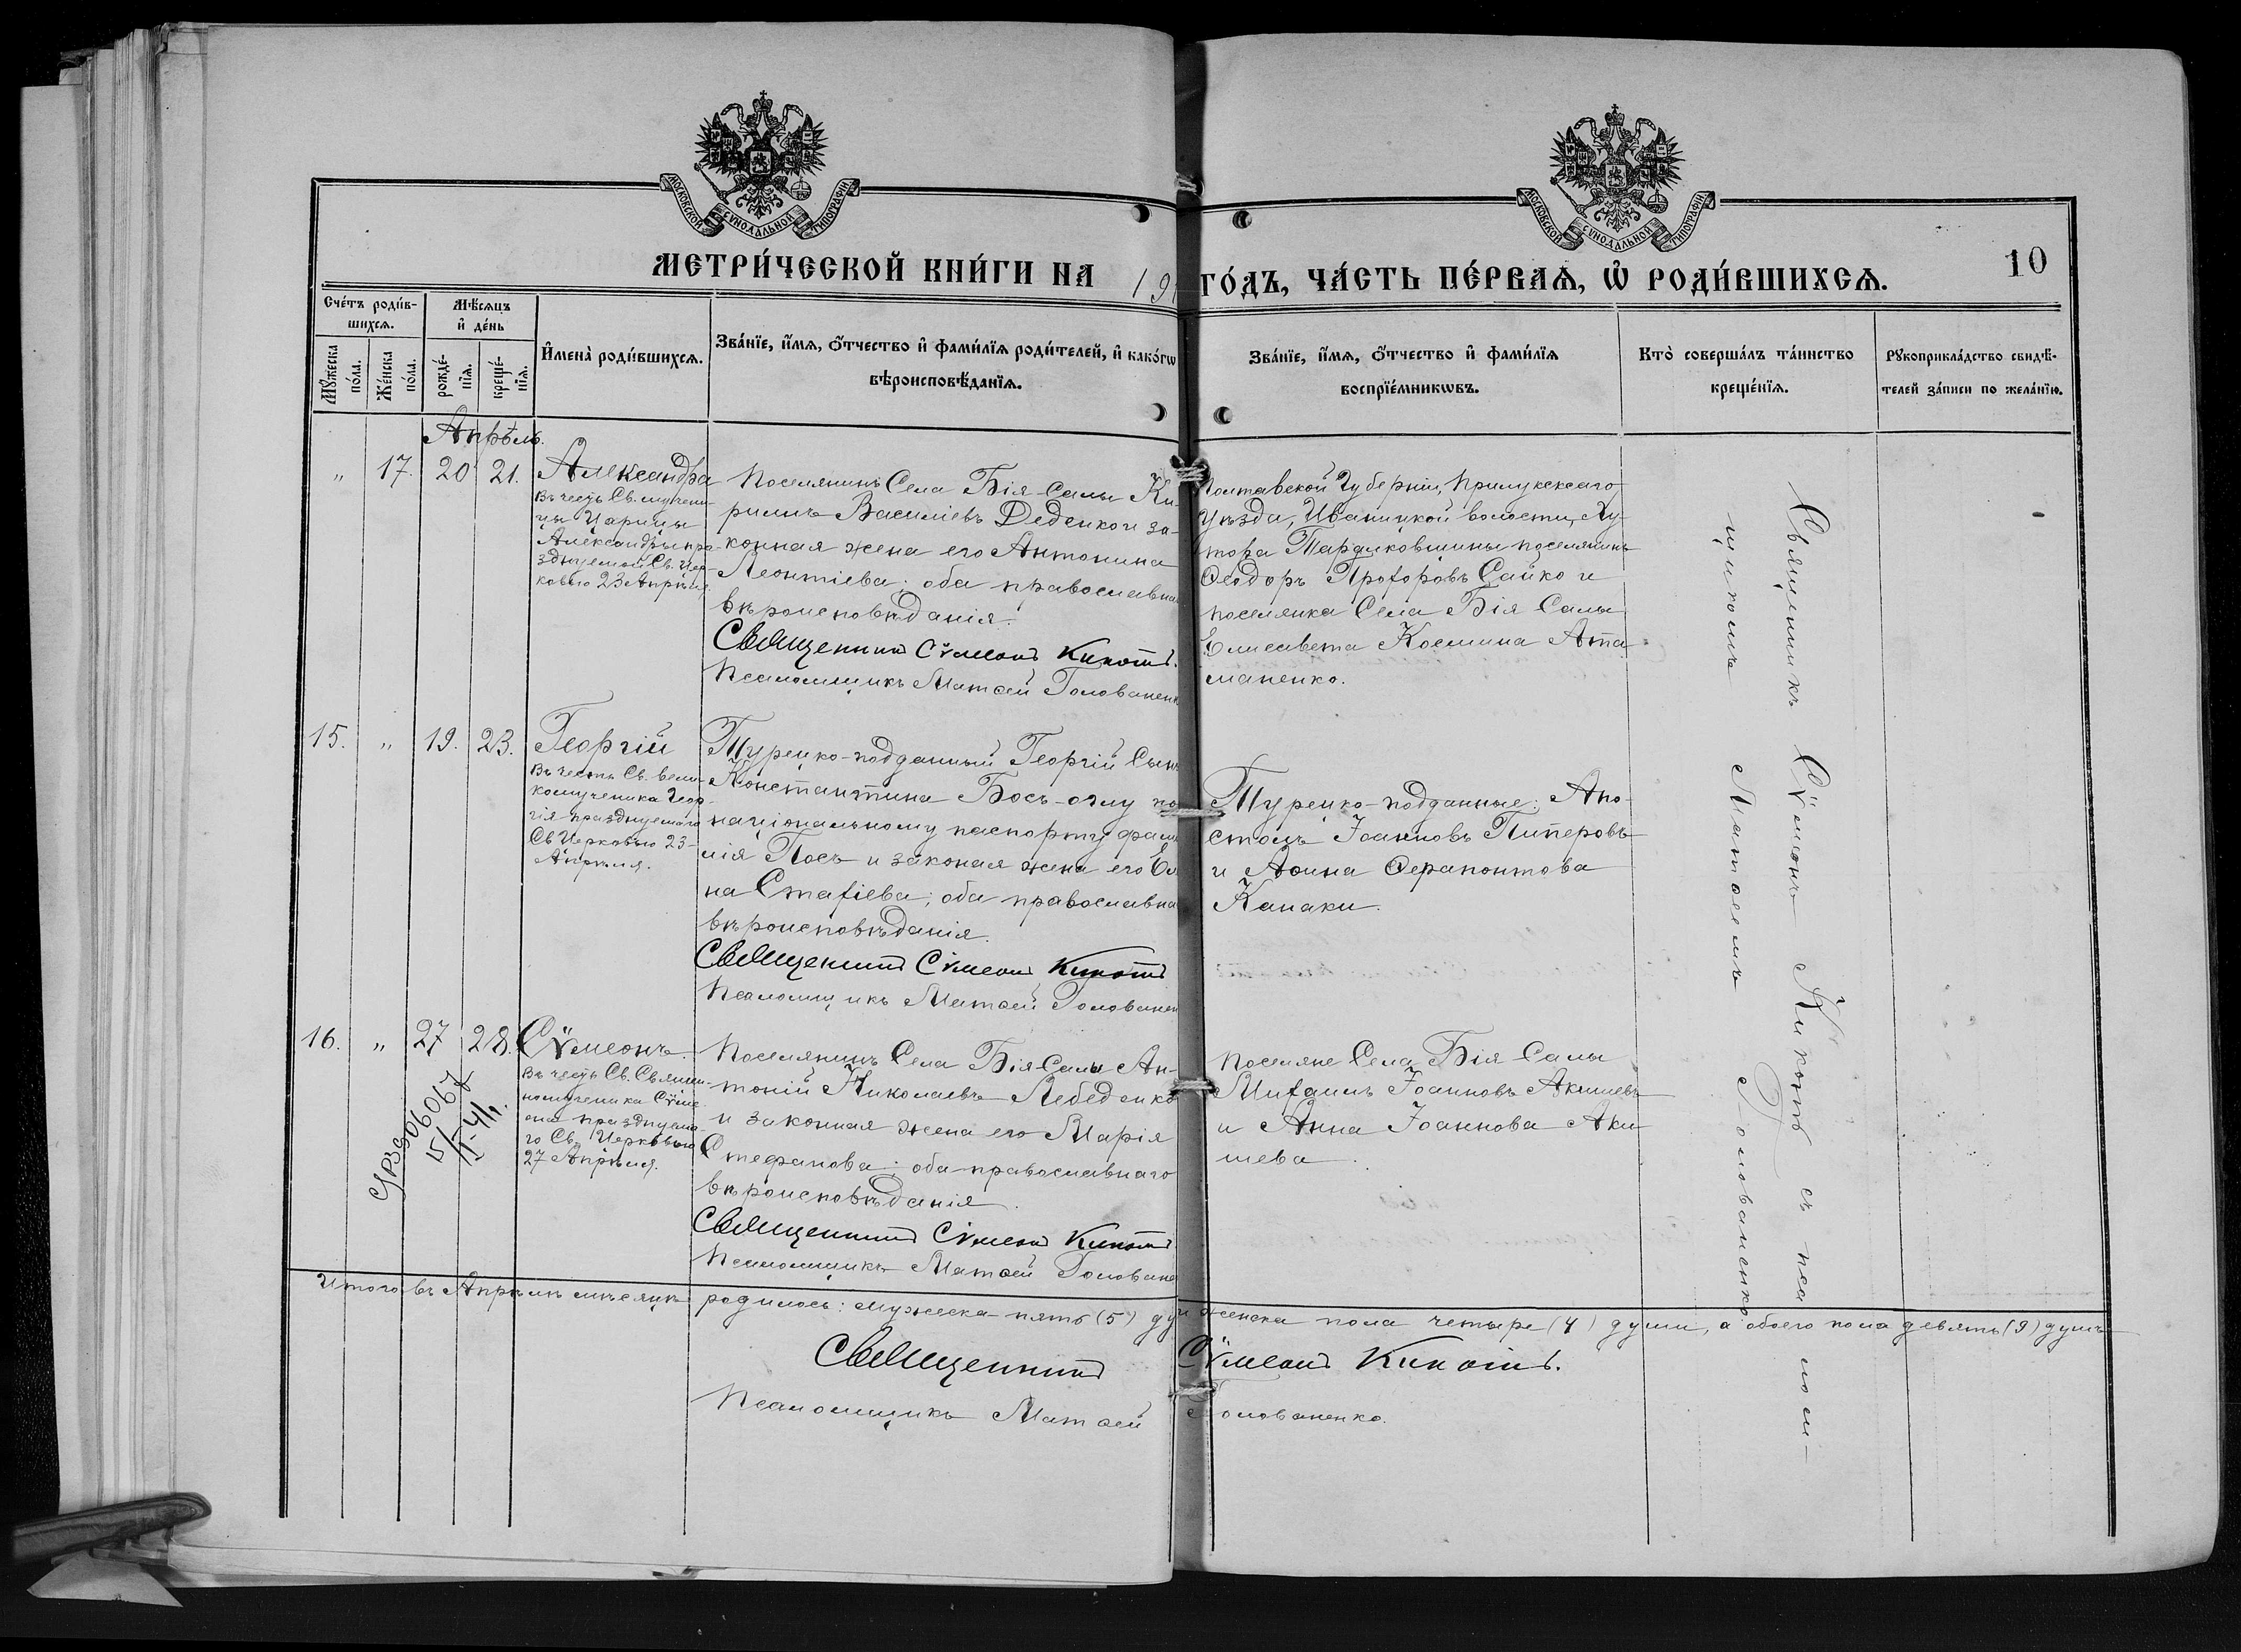 МОСКОВСКОЙ СѴНОДАЛЬНОЙ ТИПОГРАФІИ
МОСКОВСКОЙ СѴНОДАЛЬНОЙ ТИПОГРАФІИ
МЕТРИ́ЧЕСКОЙ КНИ́ГИ НА 191
ГО́ДЪ, ЧА́СТЬ ПЕ́РВАѦ, Ѡ҆ РОДИ́ВШИХСѦ.
10
Сче́тъ роди́в-
шихсѧ.
Мꙋ́жеска
по́ла.
Же́нска
по́ла.
Мѣ́сѧцъ
и҆ де́нь
рожде́-
нїѧ.
креще́-
нїѧ.
И҆мена̀ роди́вшихсѧ.
Зва́нїе, и҆́мѧ, ѻ҆́тчество и҆ фами́лїѧ роди́телей, и҆ како́гѡ
вѣроисповѣ́данїѧ.
Зва́нїе, и҆́мѧ, ѻ҆́тчество и҆ фами́лїѧ
воспрїе́мникѡвъ.
Кто̀ соверша́лъ та́инство
креще́нїѧ.
Рꙋкоприкла́дство свидѣ́-
телей за́писи по жела́нїю.
Апрѣль.
„ 17. 20 21.
Александра
Въ честь Св. мучени-
цы Царицы
Александры пра-
зднуемой Св. Цер-
ковью 23 Апрѣля
Поселянинъ Села Бія-Салы Ки-
риллъ Василіевъ Деденко и за-
конная жена его Антонина
Леонтіева; оба православна
вѣроисповѣданія.
Священникъ Сѵмеонъ Кикотъ.
Псаломщикъ Матѳей Голованенк
Полтавской Губерніи, Прилукскаго
Уѣзда, Иваницкой волости, Ху-
тора поселянинъ
Ѳеодоръ Прохоровъ Сайко и
поселянка Села Бія Салы
Елисавета Космина Ата-
маненко.
15. „ 19. 23.
Георгій
Въ честь Св. вели-
комученика Геор-
гія празднуемаго
Св Церковью 23-
Апрѣля.
Турецко-подданный Георгій Сынъ
Константина Босъ-оглу по
національному паспорту фами
лія Посъ и законая жена его Еле
на Стахіева; оба православна
вѣроисповѣданія.
Священникъ Сѵмеонъ Кикотъ
Псаломщикъ Матѳей Голованен
Турецко-подданные: Апо-
столъ Іоанновъ Пиперовъ
и Ѳерапонтова
Канаки.
16. „ 27 28.
Сѵмеонъ.
Въ честь Св. Священ-
номученика Сѵме-
она празднуема-
го Св. Церковью
27 Апрѣля.
06067
15/
Поселянинъ Села Бія-Салы Ан-
тоній Николаевъ Лебеденко
и законная жена его Марія
Стефанова; оба православнаго
вѣроисповѣданія.
Священникъ Сѵмеонъ Кикотъ
Псаломщикъ Матѳей Головане
Поселяне Села Бія Салы
Михаилъ Іоанновъ Акишевъ
и Анна Іоаннова Аки-
шева.
Священникъ Сѵмеонъ Кикотъ съ псалом-
щикомъ Матѳеемъ Голованенко
Итого въ Апрѣлѣ мѣсяцѣ родилось: мужеска пять (5) ду и женска пола четыре (4) души, а обоего пола девять (9) душъ
Священникъ Сѵмеонъ Кикотъ.
Псаломщикъ Матѳей Голованенко.